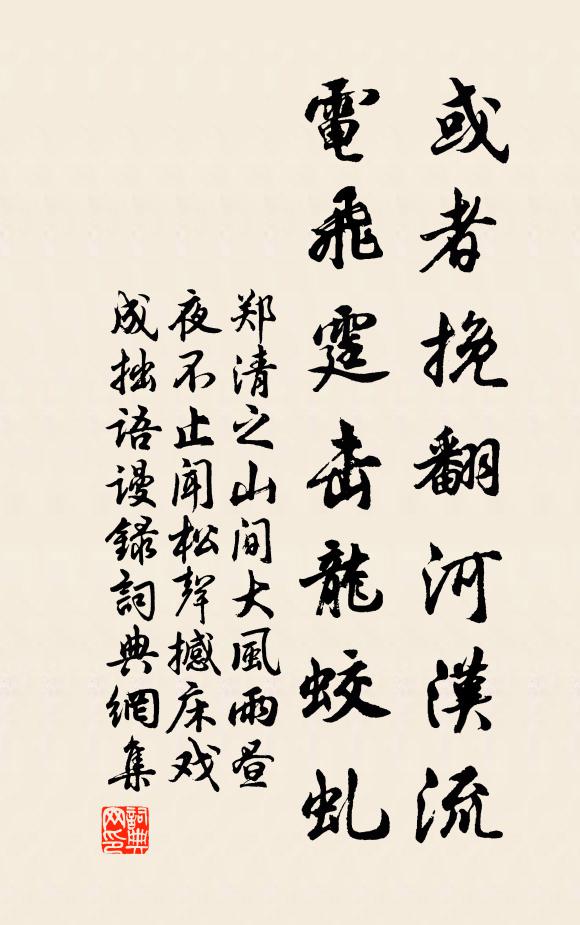 或者挽翻河漢流
電飛霆击龍蛟虬
郑清之山间大風雨昼
夜不止闻松聲撼床戏
成拙语谩録詞典網集
詞典
网印